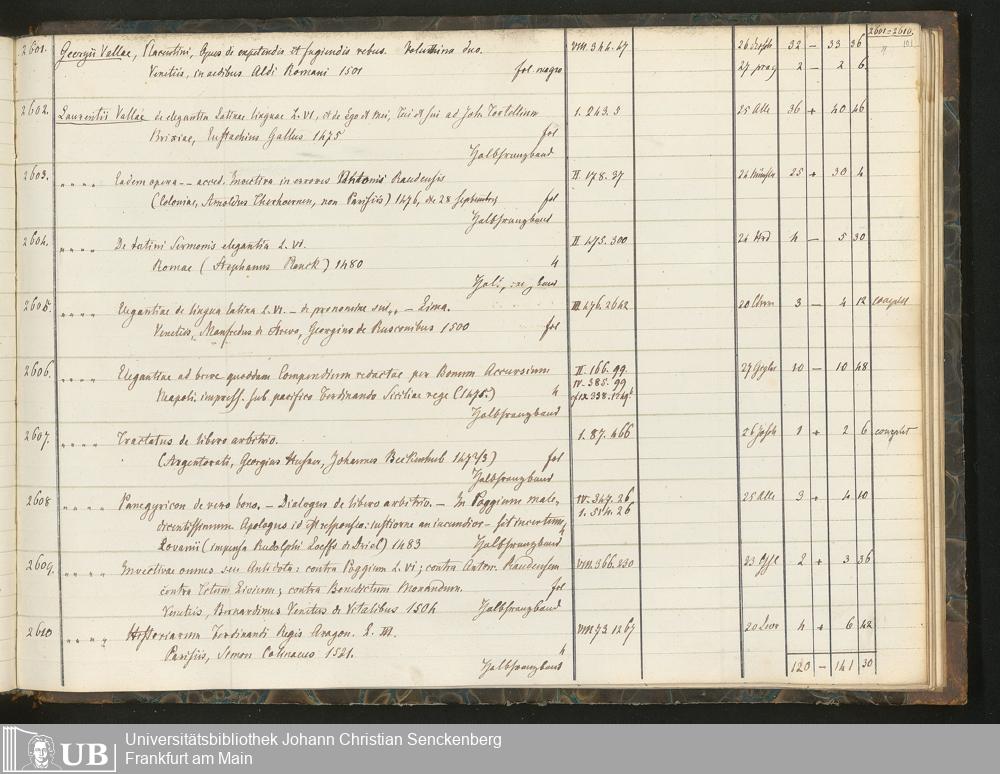 2601–2610.
2601. Georgii Vallae, Placentini, Opus de expetendis et fugiendis rebus. Volumina duo. VIII. 346. 47 26 Joseph 32 – 33 36
Venetiis, in aedibus Aldi Romani 1501 fol. magno 27 prag 2 – 2 6
2602. Laurentii Vallae de elegantia Latinae linguae L. VI, et de Ego et mei, tui et sui ad Joh. Tortellium 1. 243. 3 25 Alle 36 + 40 46
Brixiae, Eustachius Gallus 1475 fol
Halbfranzband
2603. „ „ „ „ Eadem opera -- acced. Invectiva in errores Antonii Raudensis II. 178. 37 24 25 + 30 4
(Coloniae, Arnoldus Therhoernen, non Parisiis) 1476, die 28 Septembris fol
Halbfranzband
2604. „ „ „ „ De latini Sermonis elegantia L. VI. II. 475. 300 24 4 – 5 30
Romae (Stephanus Planck) 1480 4
Halbfranzband
2605. „ „ „ „ Elegantiae de lingua latina L. VI. – de pronomine sui „ – Lima. III. 476. 2642 20 3 – 4 12 complet
Venetiis, Manfredus de Strevo, Georgino de Rusconibus 1500 fol
2606. „ „ „ „ Elegantiae ad breve quoddam Compendium redactae per Bonum Accursium II. 166. 99. 27 10 – 10 48
IV. 385. 99
Neapoli. impress. sub pacifico Ferdinando Siciliae rege (1475.) 4
Halbfranzband
2607. „ „ „ „ Tractatus de libero arbitrio. 1. 87. 466 26 Joseph 1 + 2 6 complet
(Argentorati, Georgius Husner, Johannes Beckenhub 1472/3) fol
Halbfranzband
2608 „ „ „ „ Panegyricon de vero bono. – Dialogus de libero arbitrio. – In Poggium male- IV. 347. 26 25 Alle 3 + 4 10
1. 514. 26
dicentissimum Apologus id est responsio: iustiorne an iucundior – sit incertum 4
Lovanii (impensa Rudolphi Loeffs de Driel) 1483 Halbfranzband
2609. „ „ „ „ Invectivae omnes seu Antidota: contra Poggium L. VI; contra Anton. Raudensem VIII. 366. 230 23 2 + 3 36
contra Titum Livium; contra Benedictum Morandum. fol
Venetiis, Bernardinus Venetus de Vitalibus 1504 Halbfranzband
2610 „ „ „ „ Historiarum Ferdinandi Regis Aragon. L. III. VIII. 73. 1267 20 4 + 6 42
Parisiis, Simon Colinaeus 1521. 4
Halbfranzband
120 – 141 30
UB
Universitätsbibliothek Johann Christian Senckenberg
Frankfurt am Main